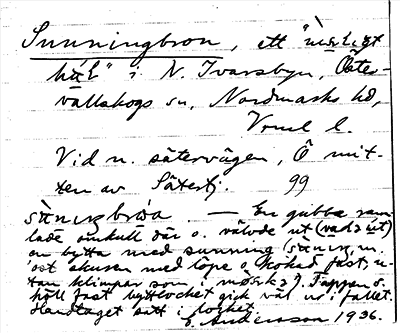 Sunningbron, ett "märkligt
hål" i N. Ivarsbyn, Öster-
vallskogs sn, Nordmarks hd,
Vrml l.
Vid n. sätervägen, Ö mit-
ten av Sätertj. 99
— En gubbe ram-
lade omkull där o. välvde ut
en bytta med sunning
ost skuren med löpe o. kokad fast, u-
tan klimpar som i
höll fast byttlocket gick väl ur i fallet.
Handtaget satt i locket.
Andersson 1936.